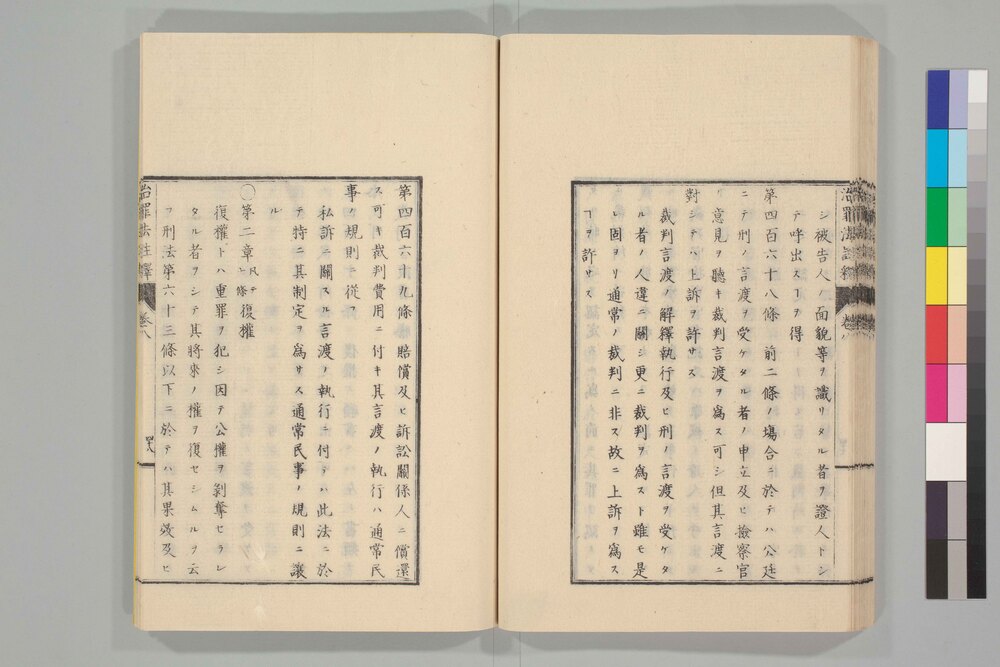 シ被告人ノ面貌等ヲ識リタル者ヲ證人トシ
テ呼出スヿヲ得
第四百六十八條 前二條ノ場合ニ於テハ公廷
ニテ刑ノ言渡ヲ受ケタル者ノ申立及ヒ檢察官
ノ意見ヲ聽キ裁判言渡ヲ爲ス可シ但其言渡ニ
對シテハ上訴ヲ許サス
裁判言渡ノ解釋執行及ヒ刑ノ言渡ヲ受ケタ
ル者ノ人違ニ關シ更ニ裁判ヲ爲スト雖モ是
レ固ヨリ通常ノ裁判ニ非ス故ニ上訴ヲ爲ス
ヿヲ許サス
第四百六十九條 賠償及ヒ訴訟關係人ニ償還
ス可キ裁判費用ニ付キ其言渡ノ執行ハ通常民
事ノ規則ニ從フ
私訴ニ關スル言渡ノ執行ニ付テハ此法ニ於
テ特ニ其制定ヲ爲サス通常民事ノ規則ニ讓
ル
〇第二章 復權
復權トハ重罪ヲ犯シ因テ公權ヲ剝奪セラレ
タル者ヲシテ其將來ノ權ヲ復セシムルヲ云
フ刑法第六十三條以下ニ於テハ其果效及ヒ
治罪法註釋 卷八